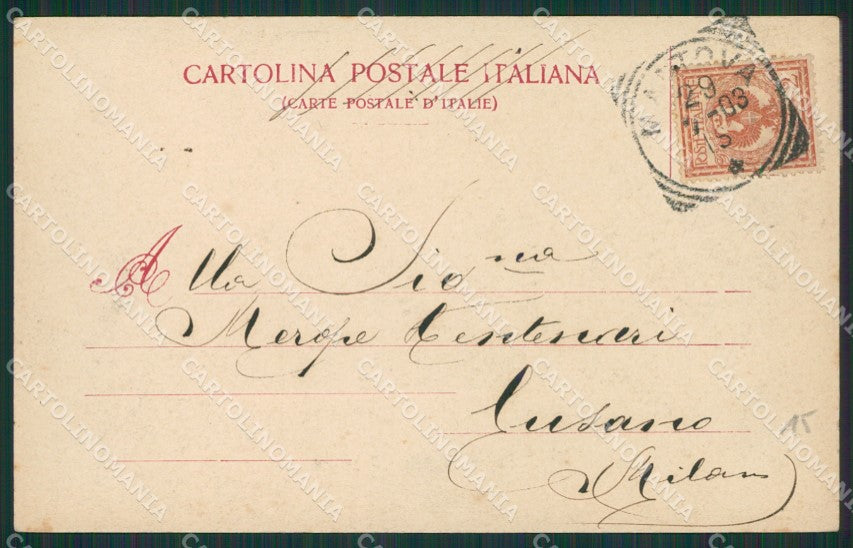 CARTOLINA POSTALE ITALIANA
(CARTE POSTALE D'ITALIE)
MANTOVA
29
-03
15
POSTE
Alla Sig.na
Merope Centenari
Cusano
Milan
15
CARTOLINOMANIA